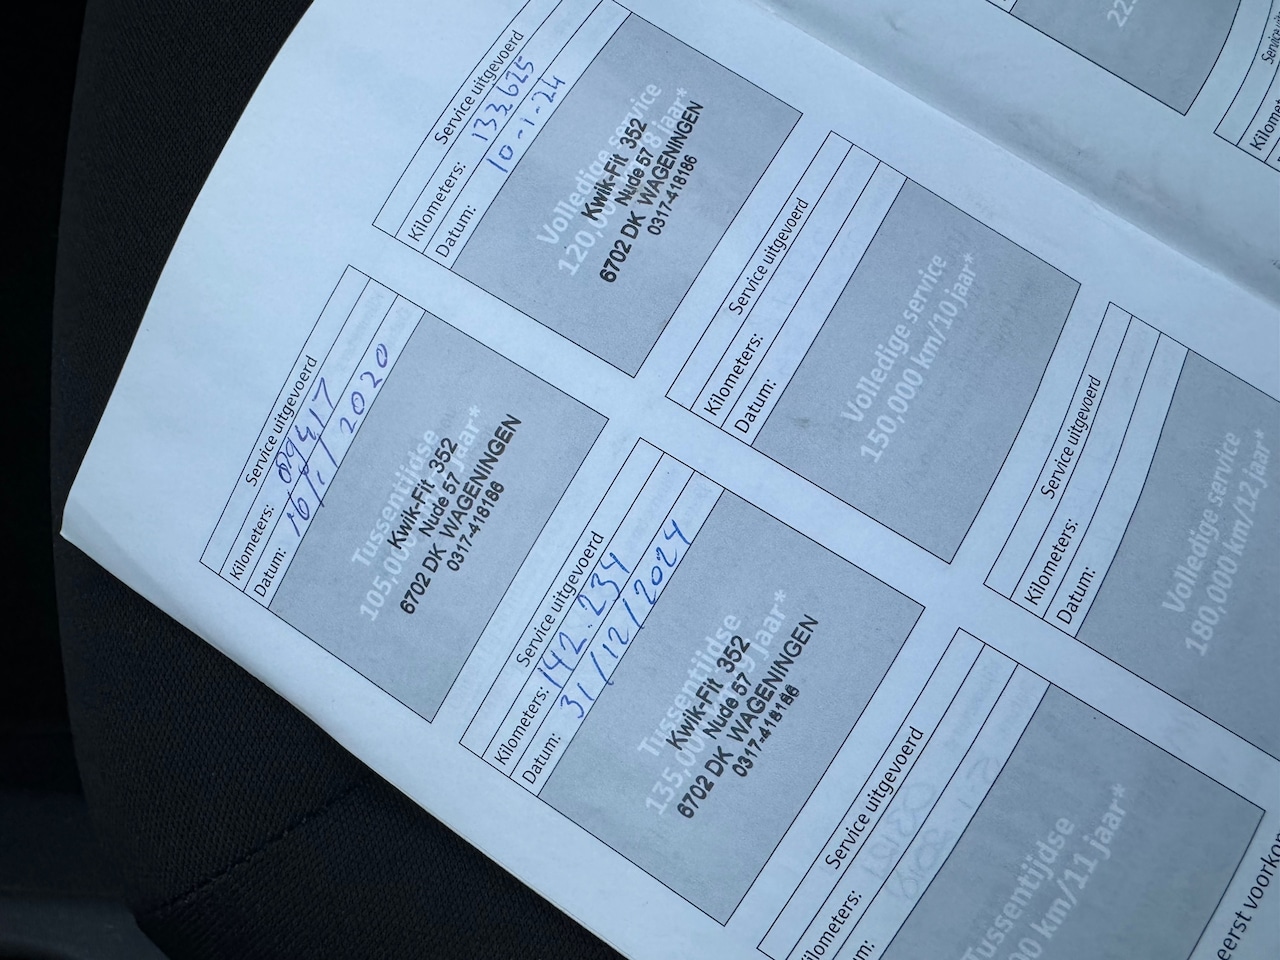 Service uitgevoerd
Kilometers: 89417
Datum: 16/1/2020
Tussentijdse
105,000 jaar*
Kwik-Fit 352
Nude 57
6702 DK WAGENINGEN
0317-418186
Service uitgevoerd
Kilometers: 133625
Datum: 10-1-24
Volledige service
120,000 8 jaar*
Kwik-Fit 352
Nude 57
6702 DK WAGENINGEN
0317-418186
Service uitgevoerd
Kilometers: 142.234
Datum: 31/12/2024
Tussentijdse
135,00 jaar*
Kwik-Fit 352
Nude 57
6702 DK WAGENINGEN
0317-418186
Service uitgevoerd
Kilometers:
Datum:
Volledige service
150,000 km/10 jaar*
Service uitgevoerd
Kilometers:
Tussentijdse
km/11 jaar*
Service uitgevoerd
Kilometers:
Datum:
Volledige service
180,000 km/12 jaar*
22
Service
Kilometers
eerst voorkom